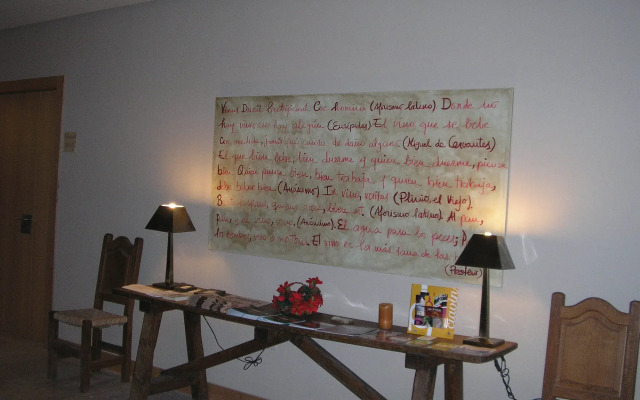 Vinum Laetificat Cor Hominis (Aforismo latino). Donde no
hay vino no hay alegría (Eurípides) El vino que se bebe
con medida, jamás fue causa de daño alguno. (Miguel de Cervantes)
El que bien bebe, bien duerme y quien bien duerme, piensa
bien. Quien piensa bien, bien trabaja y quien bien trabaja,
debe beber bien. (Anónimo) In vino, veritas (Plinio, el Viejo).
(Aforismo latino). Al pan,
pan y al vino, vino. (Anónimo). El agua para los peces;
los hombres, vino El vino es la más sana de las
(Pasteur)